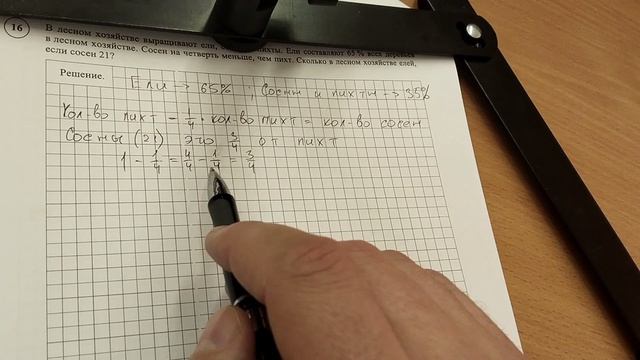 16
В лесном хозяйстве выращивают ели, пихты. Ели составляют 65 % всех деревьев
в лесном хозяйстве. Сосен на четверть меньше, чем пихт. Сколько в лесном хозяйстве елей,
если сосен 21?
Решение.
Ели → 65% ; Сосны и пихты → 35%
Кол-во пихт - 1/4 · кол-во пихт = кол-во сосен
Сосны (21) это 3/4 от пихт
1 - 1/4 = 4/4 - 1/4 = 3/4